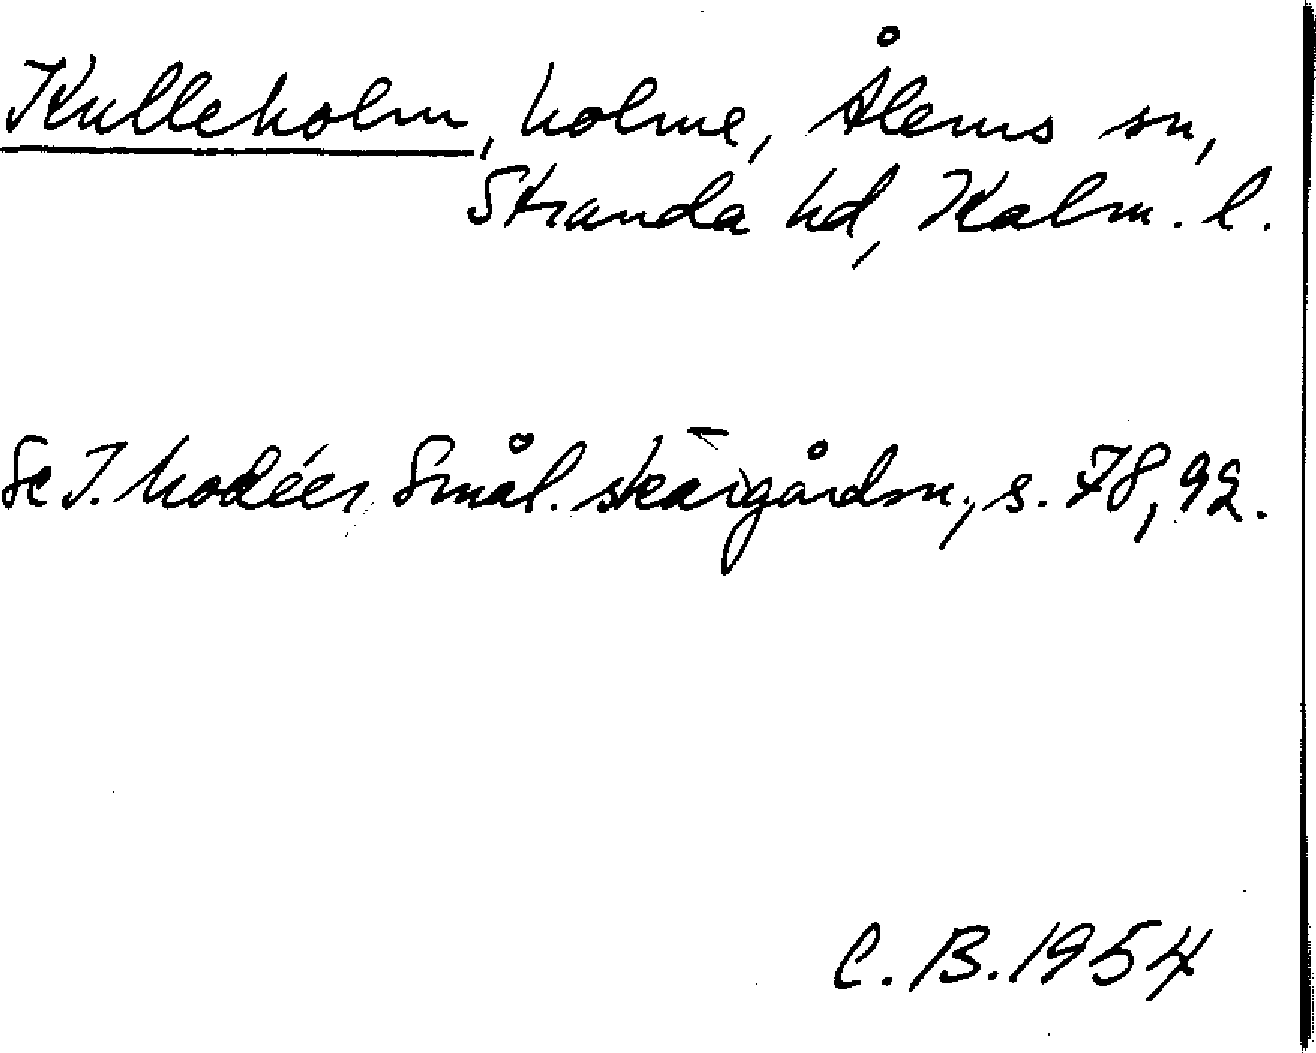 Kulleholm, holme, Ålems sn,
Stranda hd, Kalm. l.
Se I. Modéer, Smål. skärgårdsn., s. 78, 92.
C. B. 1954